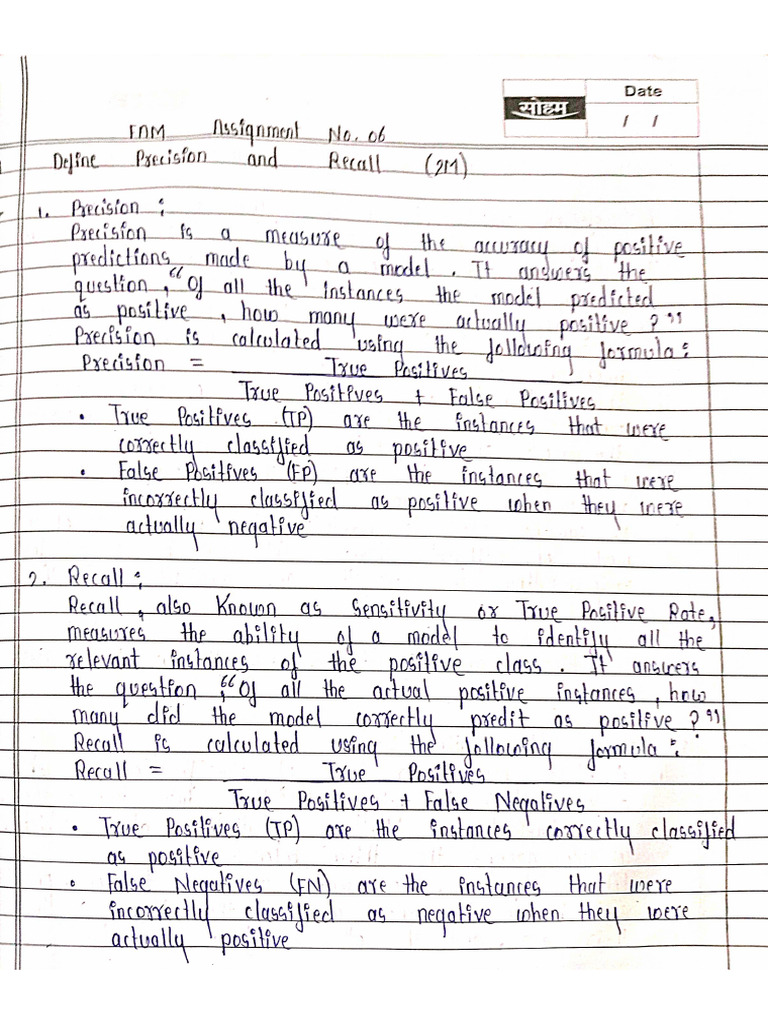 सोहम
Date
/ /
FAM Assignment No. 06
Define Precision and Recall (2M)
1. Precision :
Precision is a measure of the accuracy of positive
predictions made by a model. It answers the
question, “Of all the instances the model predicted
as positive, how many were actually positive ?”
Precision is calculated using the following formula:
Precision = True Positives
True Positives + False Positives
• True Positives (TP) are the instances that were
correctly classified as positive
• False Positives (FP) are the instances that were
incorrectly classified as positive when they were
actually negative
2. Recall :
Recall, also Known as Sensitivity or True Positive Rate,
measures the ability of a model to identify all the
relevant instances of the positive class. It answers
the question, “Of all the actual positive instances, how
many did the model correctly predit as positive ?”
Recall is calculated using the following formula:
Recall = True Positives
True Positives + False Negatives
• True Positives (TP) are the instances correctly classified
as positive
• False Negatives (FN) are the instances that were
incorrectly classified as negative when they were
actually positive